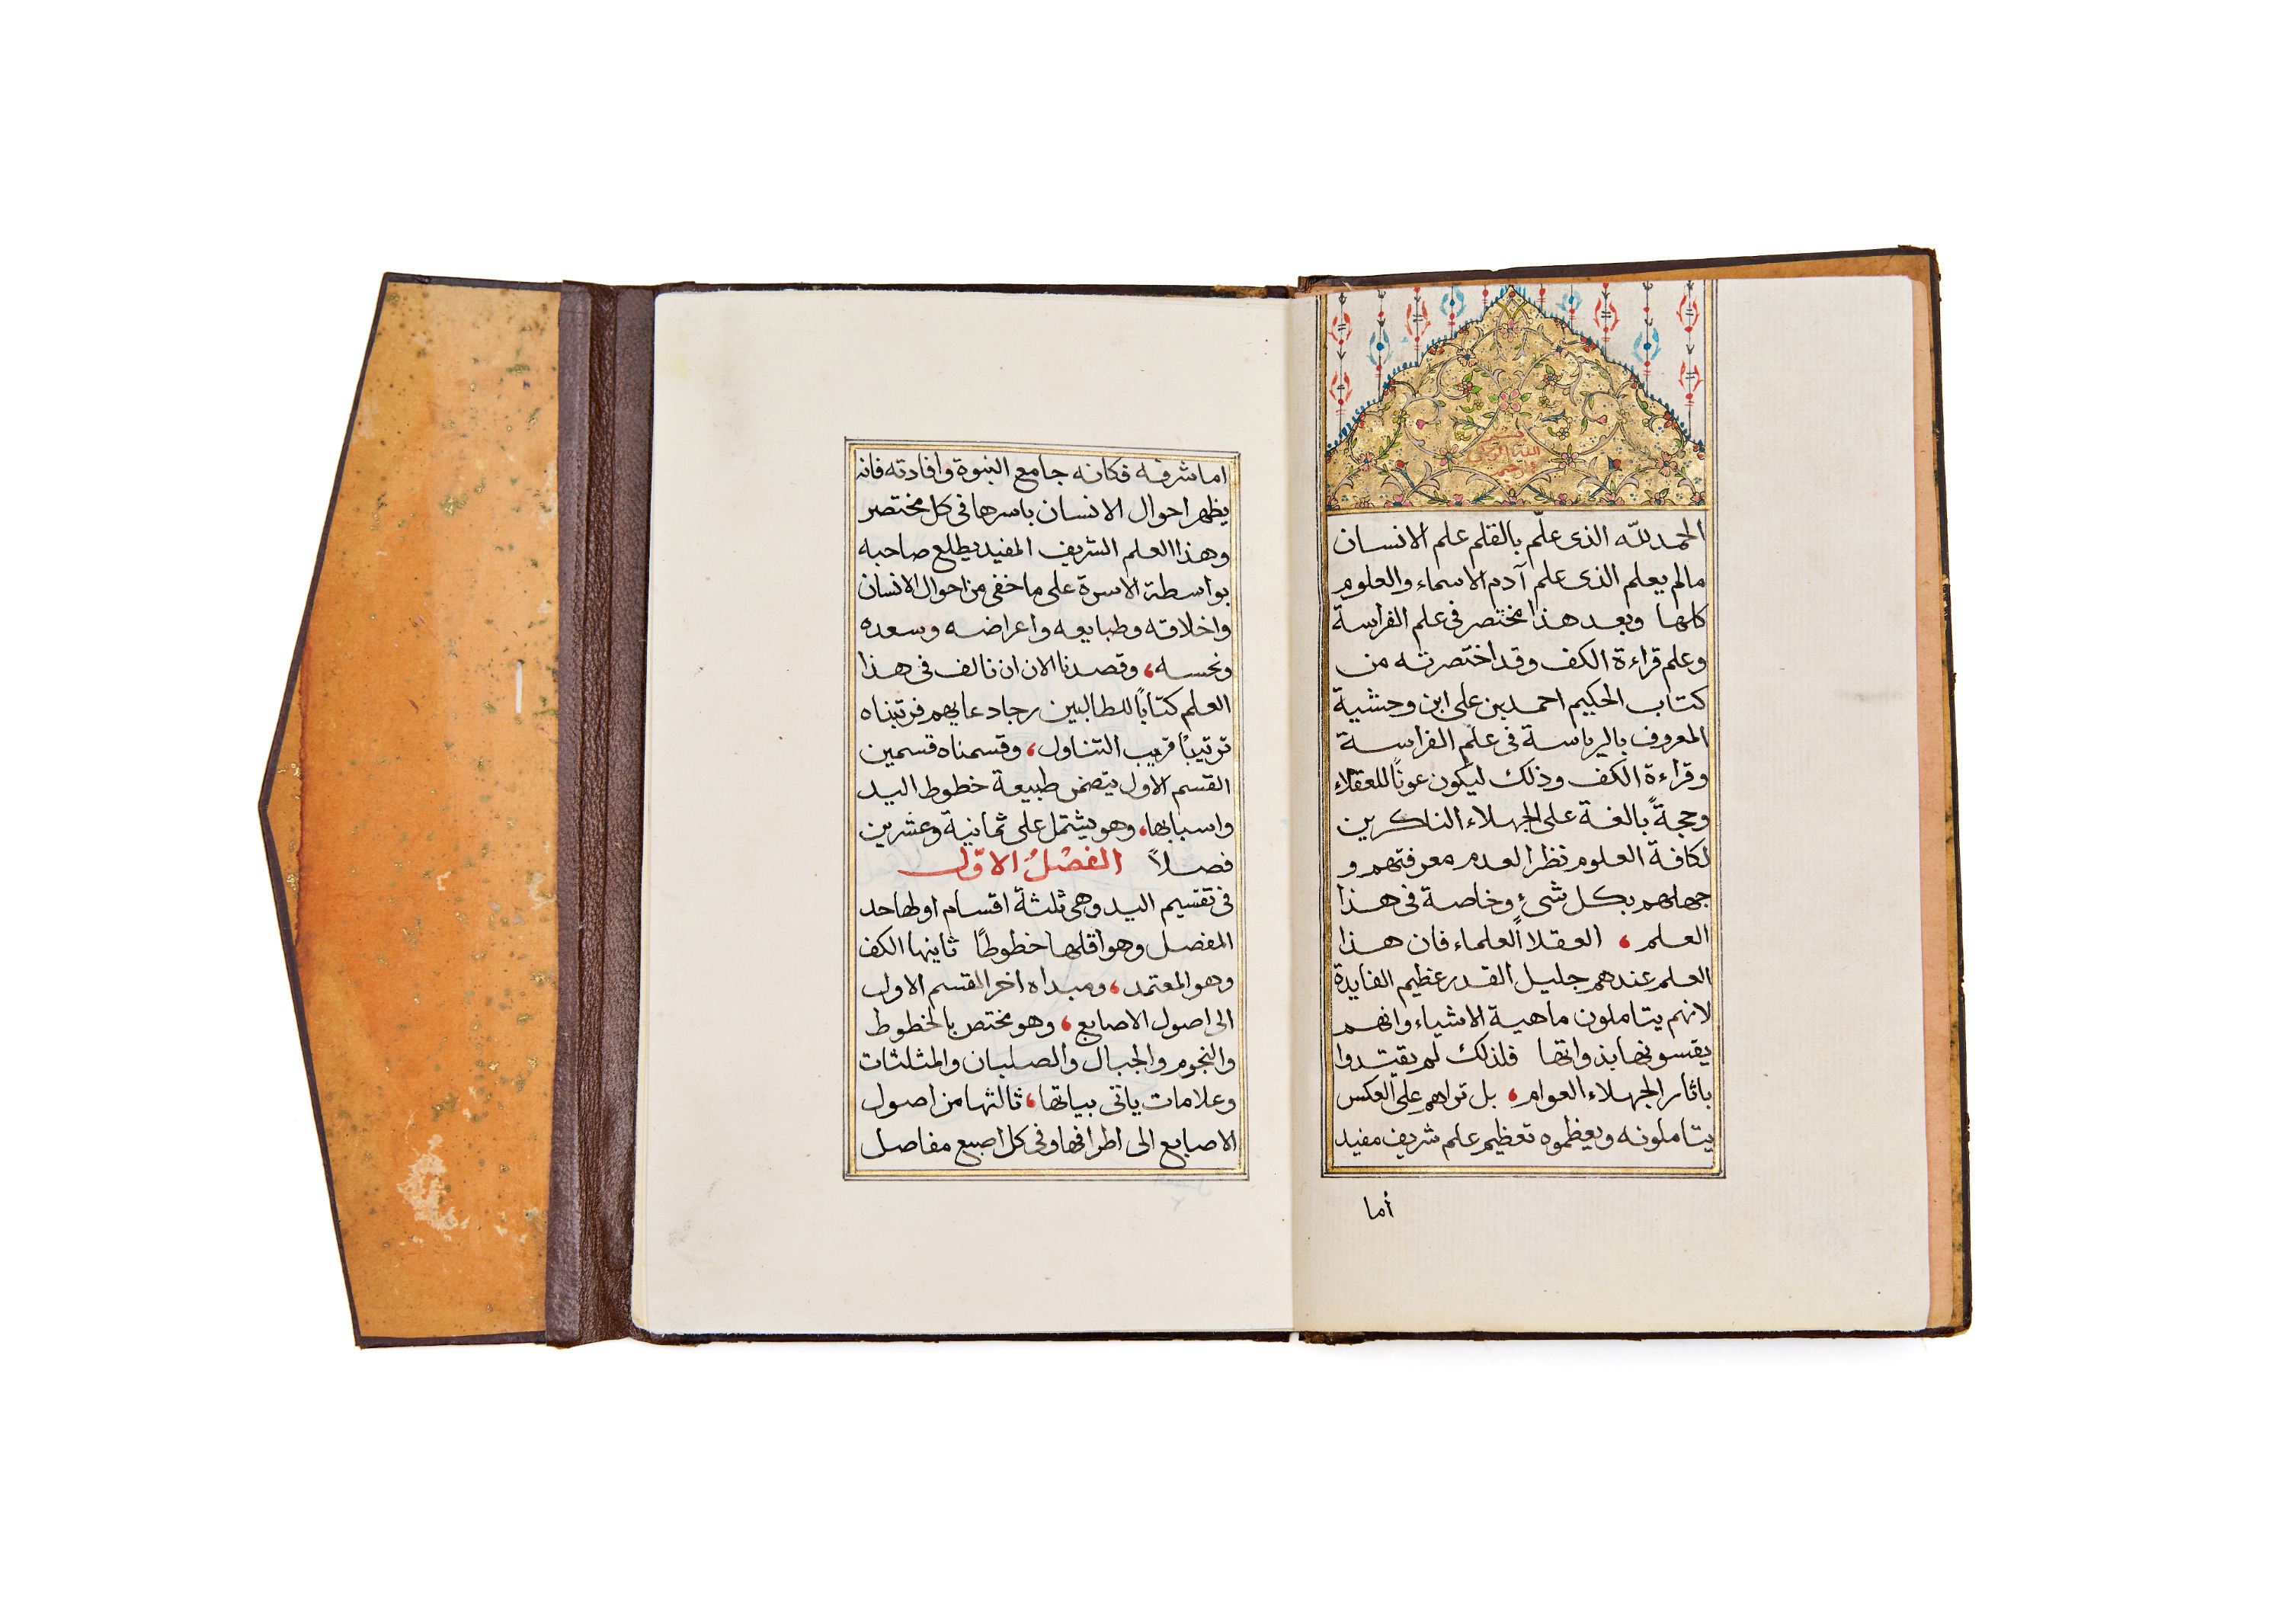 بسم
الله الرحمن
الرحيم
الحمد لله الذى علّم بالقلم علم الانسان
مالم يعلم الذى علم آدم الاسماء والعلوم
كلها وبعد هذا مختصر فى علم الفراسة
وعلم قراءة الكف وقد اختصرته من
كتاب الحكيم احمد بن على ابن وحشية
المعروف بالرياسة فى علم الفراسة
وقراءة الكف وذلك ليكون عونًا للعقلاء
وحجةً بالغة على الجهلاء الناكرين
لكافة العلوم نظرا لعدم معرفتهم و
جهلهم بكل شىء وخاصة فى هذا
العلم ، العقلاً العلماء فان هذا
العلم عندهم جليل القدر عظيم الفايدة
لانهم يتاملون ماهية الاشياء وانهم
يقسونها بذواتها فلذلك لم يقتدوا
باثار الجهلاء العوام ، بل تراهم على العكس
يتاملونه ويعظموه تعظيم علم شريف مفيد
أما
اما شرفه فكانه جامع النبوة وافادته فانه
يظهر احوال الانسان باسرها فى كل مختصر
وهذا العلم الشريف المفيد يطلع صاحبه
بواسطة الاسرة على ما خفى من احوال الانسان
واخلاقه وطبايعه واعراضه وسعده
ونحسه ، وقصدنا الان ان نالف فى هذا
العلم كتابًا للطالبين رجاء دعايهم فرتبناه
ترتيبًا قريب التناول ، وقسمناه قسمين
القسم الاول يتضمن طبيعة خطوط اليد
واسبابها ، وهو يشتمل على ثمانية وعشرين
فصلاً الفصْلُ الاوّل
فى تقسيم اليد وهى ثلثة اقسام اولها حد
المفصل وهو اقلها خطوطًا ثانيها الكف
وهو المعتمد ، ومبداه اخر القسم الاول
الى اصول الاصابع ، وهو مختص بالخطوط
والنجوم والجبال والصلبان والمثلثات
وعلامات ياتى بياتها ، ثالثها من اصول
الاصابع الى اطرافها وفى كل اصبع مفاصل